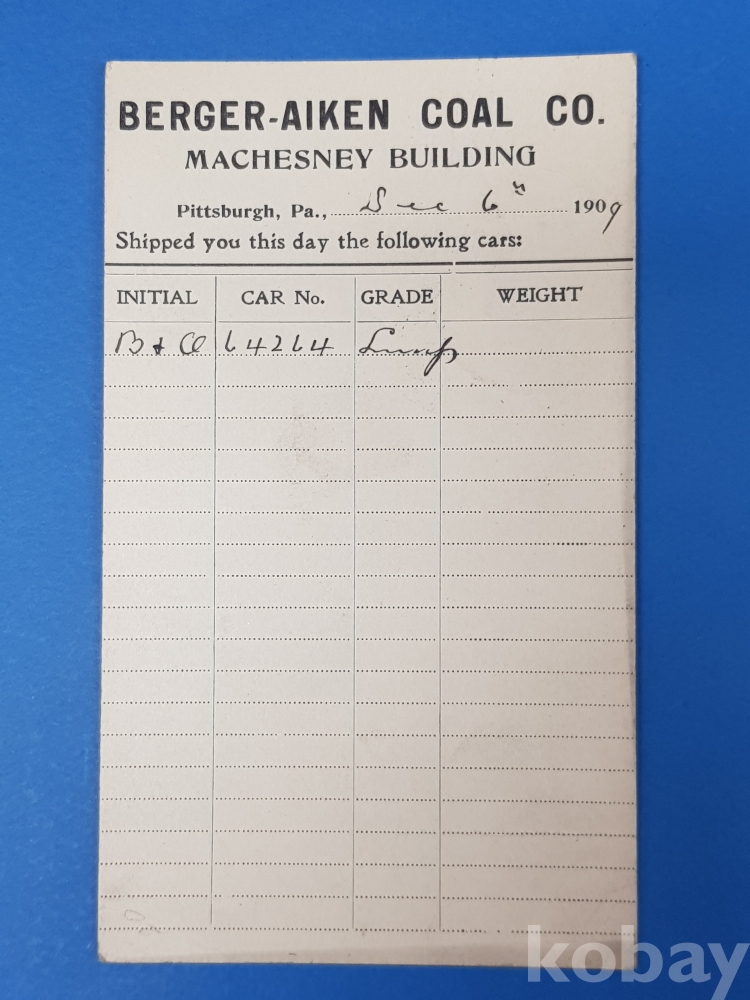 BERGER-AIKEN COAL CO.
MACHESNEY BUILDING
Pittsburgh, Pa., Dec 6th 1909
Shipped you this day the following cars:
INITIAL CAR No. GRADE WEIGHT
B & O 64264 Lump
kobay